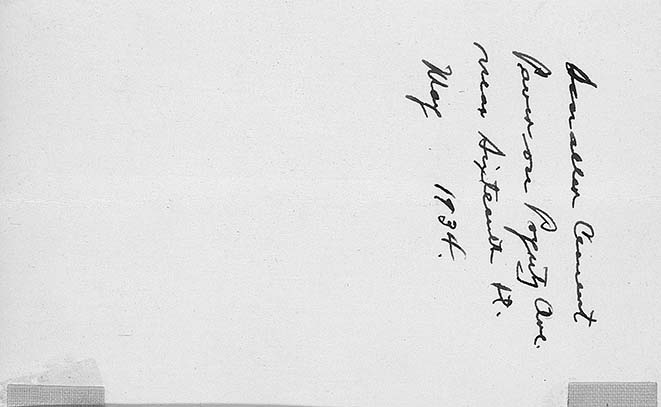 Smaller Cement
Paver on Property Ave.
near Sixteenth St.
May 1934.